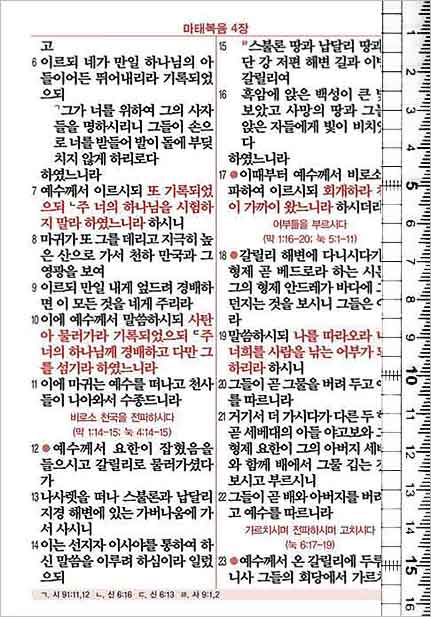 마태복음 4장
고
6 이르되 네가 만일 하나님의 아
들이어든 뛰어내리라 기록되었
으되
ㄱ그가 너를 위하여 그의 사자
들을 명하시리니 그들이 손으
로 너를 받들어 발이 돌에 부딪
치지 않게 하리로다
하였느니라
7 예수께서 이르시되 또 기록되었
으되 ㄴ주 너의 하나님을 시험하
지 말라 하였느니라 하시니
8 마귀가 또 그를 데리고 지극히 높
은 산으로 가서 천하 만국과 그
영광을 보여
9 이르되 만일 내게 엎드려 경배하
면 이 모든 것을 네게 주리라
10 이에 예수께서 말씀하시되 사탄
아 물러가라 기록되었으되 ㄷ주
너의 하나님께 경배하고 다만 그
를 섬기라 하였느니라
11 이에 마귀는 예수를 떠나고 천사
들이 나아와서 수종드니라
비로소 천국을 전파하시다
(막 1:14-15; 눅 4:14-15)
12 ●예수께서 요한이 잡혔음을
들으시고 갈릴리로 물러가셨다
가
13 나사렛을 떠나 스불론과 납달리
지경 해변에 있는 가버나움에 가
서 사시니
14 이는 선지자 이사야를 통하여 하
신 말씀을 이루려 하심이라 일렀
으되
15 ㄹ스불론 땅과 납달리 땅과
단 강 저편 해변 길과
갈릴리여
16 흑암에 앉은 백성이 큰
보았고 사망의 땅과
앉은 자들에게 빛이
다
하였느니라
17 ●이때부터 예수께서 비로소
파하여 이르시되 회개하라
이 가까이 왔느니라 하시더라
어부들을 부르시다
(막 1:16-20; 눅 5:1-11)
18 ●갈릴리 해변에 다니시다가
형제 곧 베드로라 하는
그의 형제 안드레가 바다에
던지는 것을 보시니 그들은
라
19 말씀하시되 나를 따라오라
너희를 사람을 낚는 어부가
하리라 하시니
20 그들이 곧 그물을 버려 두고
를 따르니라
21 거기서 더 가시다가 다른 두
곧 세베대의 아들 야고보와
형제 요한이 그의 아버지
와 함께 배에서 그물 깁는
보시고 부르시니
22 그들이 곧 배와 아버지를
고 예수를 따르니라
가르치시며 전파하시며 고치시다
(눅 6:17-19)
23 ●예수께서 온 갈릴리에
니사 그들의 회당에서
ㄱ. 시 91:11,12 ㄴ. 신 6:16 ㄷ. 신 6:13 ㄹ. 사 9:1,2
1
2
3
4
5
6
7
8
9
10
11
12
13
14
15
16